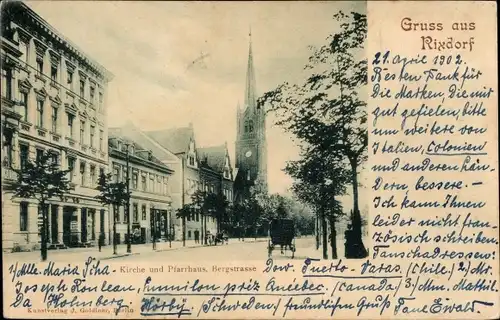 Gruss aus
Rixdorf
21. April 1902.
Besten Dank für
Die Marken, Die mir
gut gefielen, bitte
um weitere von
Italien, Colonien
und anderen Län-
dern, bessere.-
Ich kann Ihnen
leider nicht fran-
zösisch schreiben
Tauschadressen:
Kirche und Pfarrhaus, Bergstrasse
1/ Mlle. Maria Cow. Puerto Varas (Chile,) 2/ Mr.
Joseph (Canada) 3/ Mm. Mathil
Da Holmberg Hörby (Schweden) freundlichen Gruß Paul Ewald.
Kunstverlag J. Goldiner, Berlin